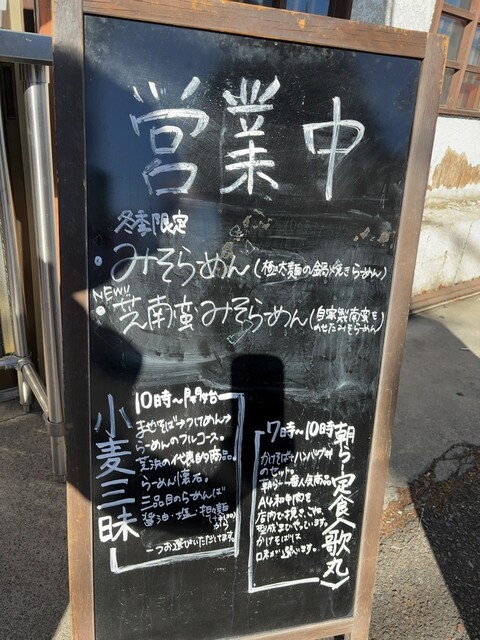 営業中
冬季限定
・みそらーめん(極太麺の鍋焼きらーめん)
NEW!!
・芝南蛮みそらーめん(自家製南蛮を
のせたみそらーめん)
小麦三昧
10時〜開始
まぜそば→つけめん→
らーめんのフルコース。
芝浜の代表的商品。
らーめん懐石。
三品目のらーめんは
醤油・塩・担々麺
から
一つお選びいただけます。
朝らー定食〈歌丸〉
7時〜10時
かけそば+ハンバーグ
のセット。
朝らー一番人気商品
A4和牛肉を
店内で挽き、こね
かけそばは